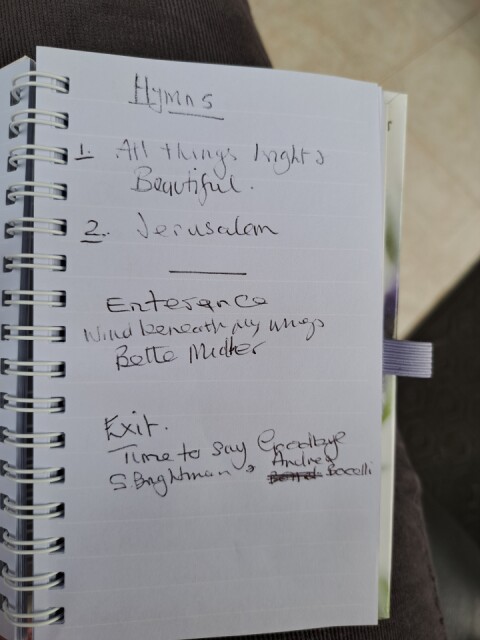 Hymns
1. All things bright &
Beautiful.
2. Jerusalem
Enterance
Wind beneath my wings
Bette Midler
Exit.
Time to say Goodbye
Andrea
S Brightman & Bocelli